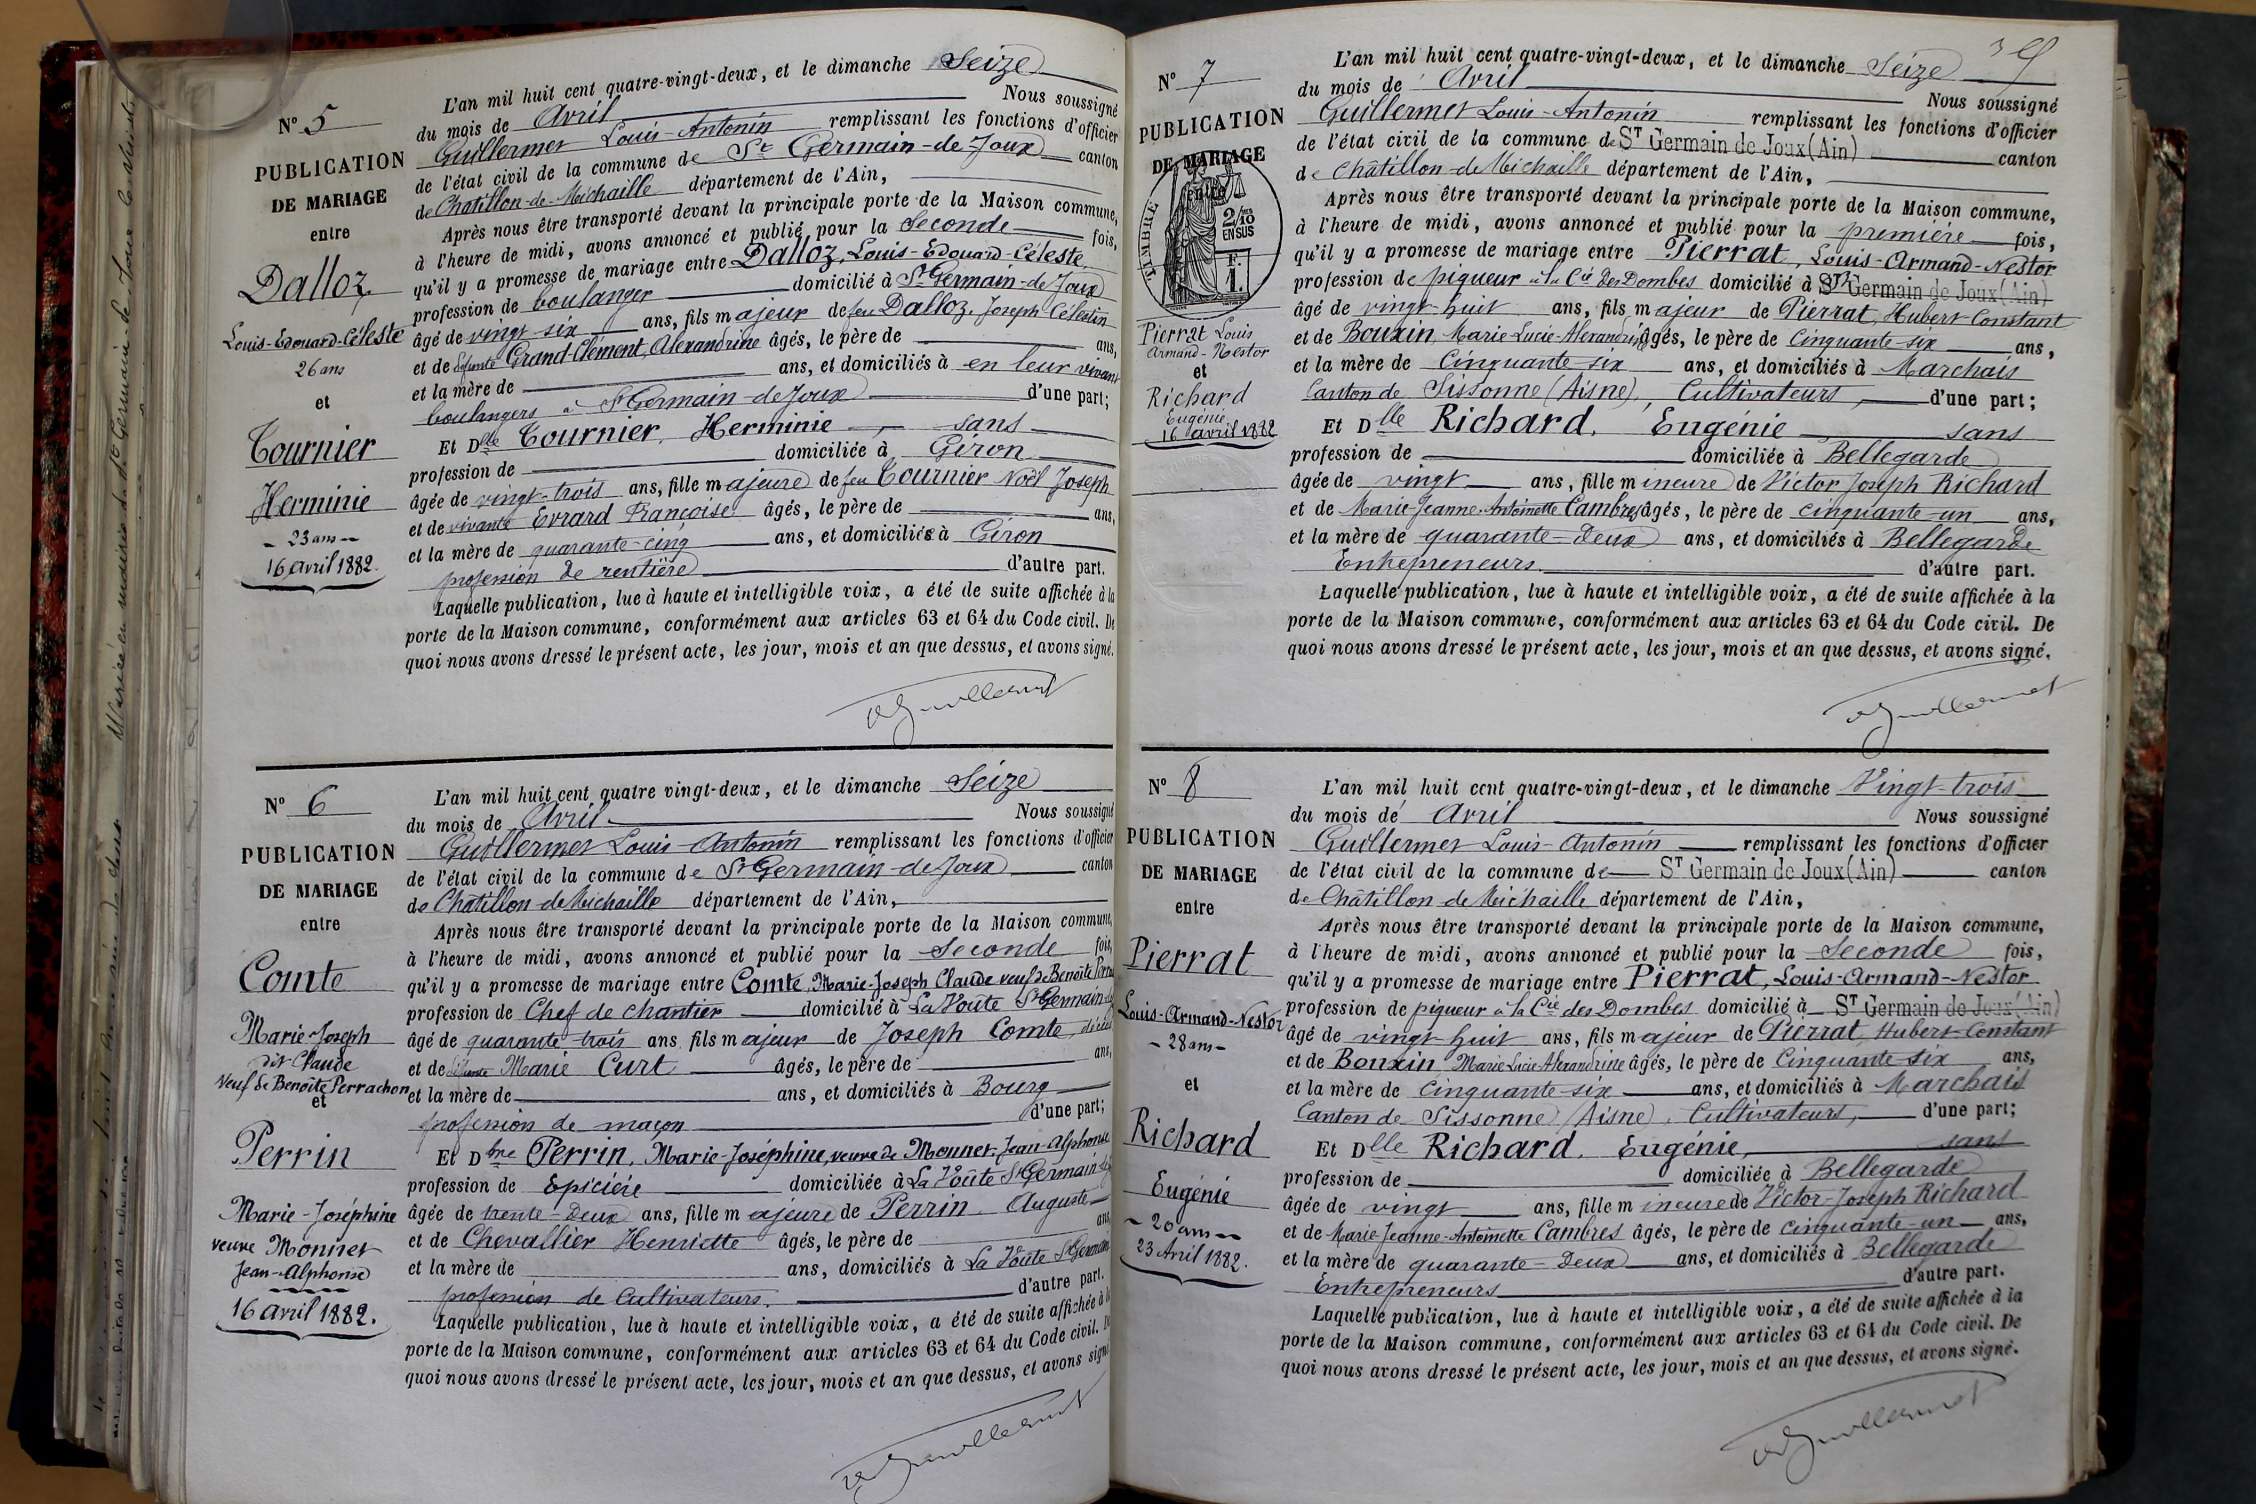 N° 5
PUBLICATION
DE MARIAGE
entre
Dalloz
Louis-Edouard-Céleste
26 ans
et
Tournier
Herminie
23 ans
16 avril 1882.
L'an mil huit cent quatre-vingt-deux, et le dimanche Seize
du mois de Avril Nous soussigné
Guillermet Louis-Antonin remplissant les fonctions d'officier
de l'état civil de la commune de St Germain-de-Joux canton
de Chatillon-de-Michaille département de l'Ain,
Après nous être transporté devant la principale porte de la Maison commune,
à l'heure de midi, avons annoncé et publié pour la Seconde fois,
qu'il y a promesse de mariage entre Dalloz, Louis-Edouard-Céleste,
profession de boulanger domicilié à St Germain-de-Joux
âgé de vingt-six ans, fils majeur de feu Dalloz, Joseph Célestin
et de défunte Grand-Clément, Alexandrine âgés, le père de ans,
et la mère de ans, et domiciliés à en leur vivant
boulangers à St Germain-de-Joux d'une part;
Et Dlle Tournier, Herminie, sans
profession de domiciliée à Giron
âgée de vingt-trois ans, fille majeure de feu Tournier Noël Joseph
et de vivante Evrard Françoise âgés, le père de ans,
et la mère de quarante-cinq ans, et domiciliés à Giron
profession de rentière d'autre part.
Laquelle publication, lue à haute et intelligible voix, a été de suite affichée à la
porte de la Maison commune, conformément aux articles 63 et 64 du Code civil. De
quoi nous avons dressé le présent acte, les jour, mois et an que dessus, et avons signé.
Guillermet
N° 6
PUBLICATION
DE MARIAGE
entre
Comte
Marie-Joseph
dit Claude
Veuf de Benoîte Perrachon
et
Perrin
Marie-Joséphine
veuve Monnet
Jean-Alphonse
16 avril 1882.
L'an mil huit cent quatre vingt-deux, et le dimanche Seize
du mois de Avril. Nous soussigné
Guillermet Louis-Antonin remplissant les fonctions d'officier
de l'état civil de la commune de St Germain-de-Joux canton
de Chatillon-de-Michaille département de l'Ain,
Après nous être transporté devant la principale porte de la Maison commune,
à l'heure de midi, avons annoncé et publié pour la Seconde fois,
qu'il y a promesse de mariage entre Comte, Marie-Joseph Claude veuf de Benoîte
profession de Chef de chantier domicilié à La Voûte St Germain
âgé de quarante-trois ans fils majeur de Joseph Comte,
et de défunte Marie Curt âgés, le père de ans,
et la mère de ans, et domiciliés à Bourg
profession de maçon d'une part;
Et Dme Perrin, Marie-Joséphine, veuve de Monnet Jean-Alphonse
profession de Epicière domiciliée à La Voûte St Germain
âgée de trente-deux ans, fille majeure de Perrin Auguste
et de Chevallier Henriette âgés, le père de ans,
et la mère de ans, domiciliés à La Voûte St Germain
profession de Cultivateurs. d'autre part.
Laquelle publication, lue à haute et intelligible voix, a été de suite affichée à la
porte de la Maison commune, conformément aux articles 63 et 64 du Code civil. De
quoi nous avons dressé le présent acte, les jour, mois et an que dessus, et avons signé
Guillermet
N° 7
PUBLICATION
DE MARIAGE
entre
TIMBRE
2/10
EN SUS
F.
1.
Pierrat Louis
Armand-Nestor
et
Richard
Eugénie
16 avril 1882
L'an mil huit cent quatre-vingt-deux, et le dimanche Seize
du mois de Avril Nous soussigné
Guillermet Louis-Antonin remplissant les fonctions d'officier
de l'état civil de la commune de ST Germain de Joux (Ain) canton
de Châtillon-de-Michaille département de l'Ain,
Après nous être transporté devant la principale porte de la Maison commune,
à l'heure de midi, avons annoncé et publié pour la première fois,
qu'il y a promesse de mariage entre Pierrat, Louis-Armand-Nestor
profession de piqueur à la Cie des Dombes domicilié à ST Germain de Joux (Ain)
âgé de vingt-huit ans, fils majeur de Pierrat, Hubert Constant
et de Bouxin, Marie-Lucie-Alexandrine âgés, le père de Cinquante-six ans,
et la mère de Cinquante-six ans, et domiciliés à Marchais
Canton de Sissonne (Aisne), Cultivateurs, d'une part;
Et Dlle Richard, Eugénie sans
profession de domiciliée à Bellegarde
âgée de vingt ans, fille mineure de Victor Joseph Richard
et de Marie-Jeanne-Antoinette Cambres âgés, le père de cinquante-un ans,
et la mère de quarante-deux ans, et domiciliés à Bellegarde
Entrepreneurs. d'autre part.
Laquelle publication, lue à haute et intelligible voix, a été de suite affichée à la
porte de la Maison commune, conformément aux articles 63 et 64 du Code civil. De
quoi nous avons dressé le présent acte, les jour, mois et an que dessus, et avons signé.
Guillermet
N° 8
PUBLICATION
DE MARIAGE
entre
Pierrat
Louis-Armand-Nestor
28 ans
et
Richard
Eugénie
20 ans
23 Avril 1882.
L'an mil huit cent quatre-vingt-deux, et le dimanche Vingt-trois
du mois de Avril Nous soussigné
Guillermet Louis-Antonin remplissant les fonctions d'officier
de l'état civil de la commune de ST Germain de Joux (Ain) canton
de Châtillon de Michaille département de l'Ain,
Après nous être transporté devant la principale porte de la Maison commune,
à l'heure de midi, avons annoncé et publié pour la Seconde fois,
qu'il y a promesse de mariage entre Pierrat, Louis-Armand-Nestor
profession de piqueur à la Cie des Dombes domicilié à ST Germain de Joux (Ain)
âgé de vingt-huit ans, fils majeur de Pierrat, Hubert-Constant
et de Bouxin, Marie Lucie Alexandrine âgés, le père de Cinquante-six ans,
et la mère de Cinquante-six ans, et domiciliés à Marchais
Canton de Sissonne (Aisne), Cultivateurs, d'une part;
Et Dlle Richard, Eugénie, sans
profession de domiciliée à Bellegarde
âgée de vingt ans, fille mineure de Victor-Joseph Richard
et de Marie Jeanne-Antoinette Cambres âgés, le père de Cinquante-un ans,
et la mère de quarante-deux ans, et domiciliés à Bellegarde
Entrepreneurs d'autre part.
Laquelle publication, lue à haute et intelligible voix, a été de suite affichée à la
porte de la Maison commune, conformément aux articles 63 et 64 du Code civil. De
quoi nous avons dressé le présent acte, les jour, mois et an que dessus, et avons signé.
Guillermet